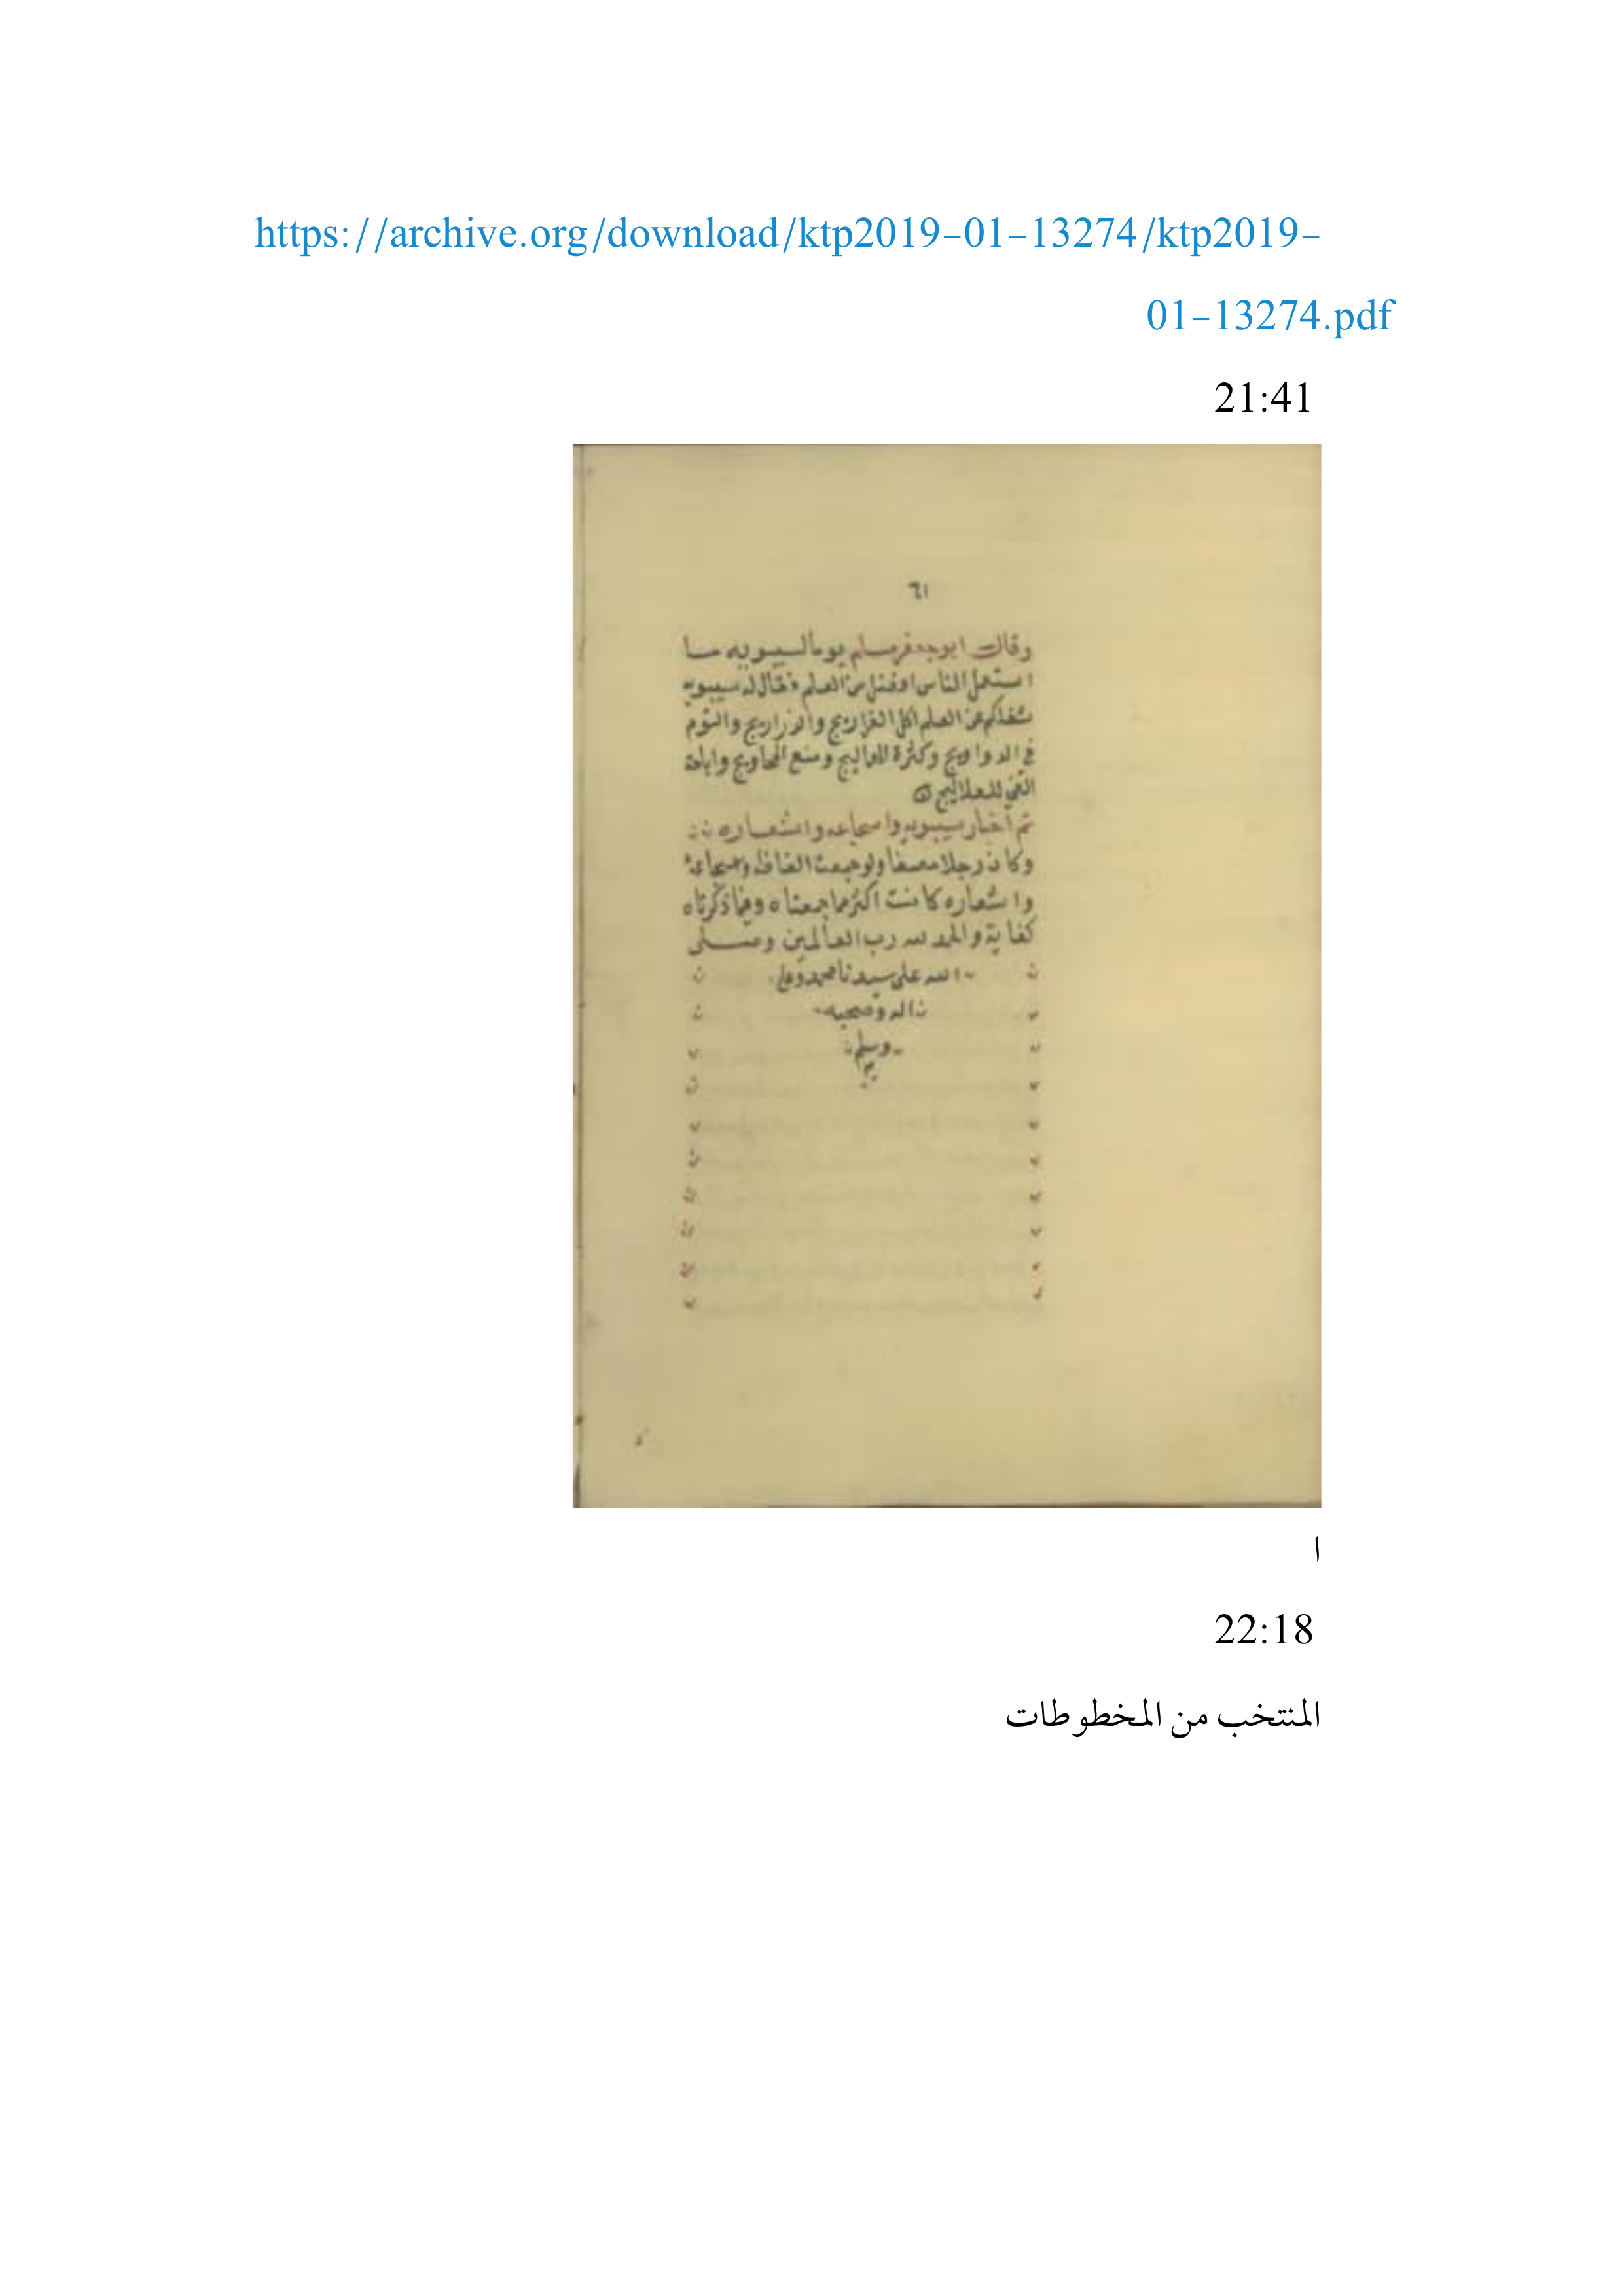 https://archive.org/download/ktp2019-01-13274/ktp2019-
01-13274.pdf
21:41
٦١
وقال ابوجعفر مسلم يوما لسيبويه ما
استعمل الناس افضل من العلم فقال له سيبويه
شغلكم عن العلم اكل الفراريج والزراريج والنوم
في الدواويج وكثرة المماليج ومنع المحاويج واباحة
للعلاليج
تم أخبار سيبويه واسجاعه واشعاره
وكان رجلا مصنفا ولو جمعت الفاظه وسجاعه
واشعاره كانت اكثر مما جمعناه وفيما ذكرناه
كفاية والحمد لله رب العالمين وصلى
الله على سيدنا محمد وعلى
اله وصحبه
وسلم
ا
22:18
المنتخب من المخطوطات